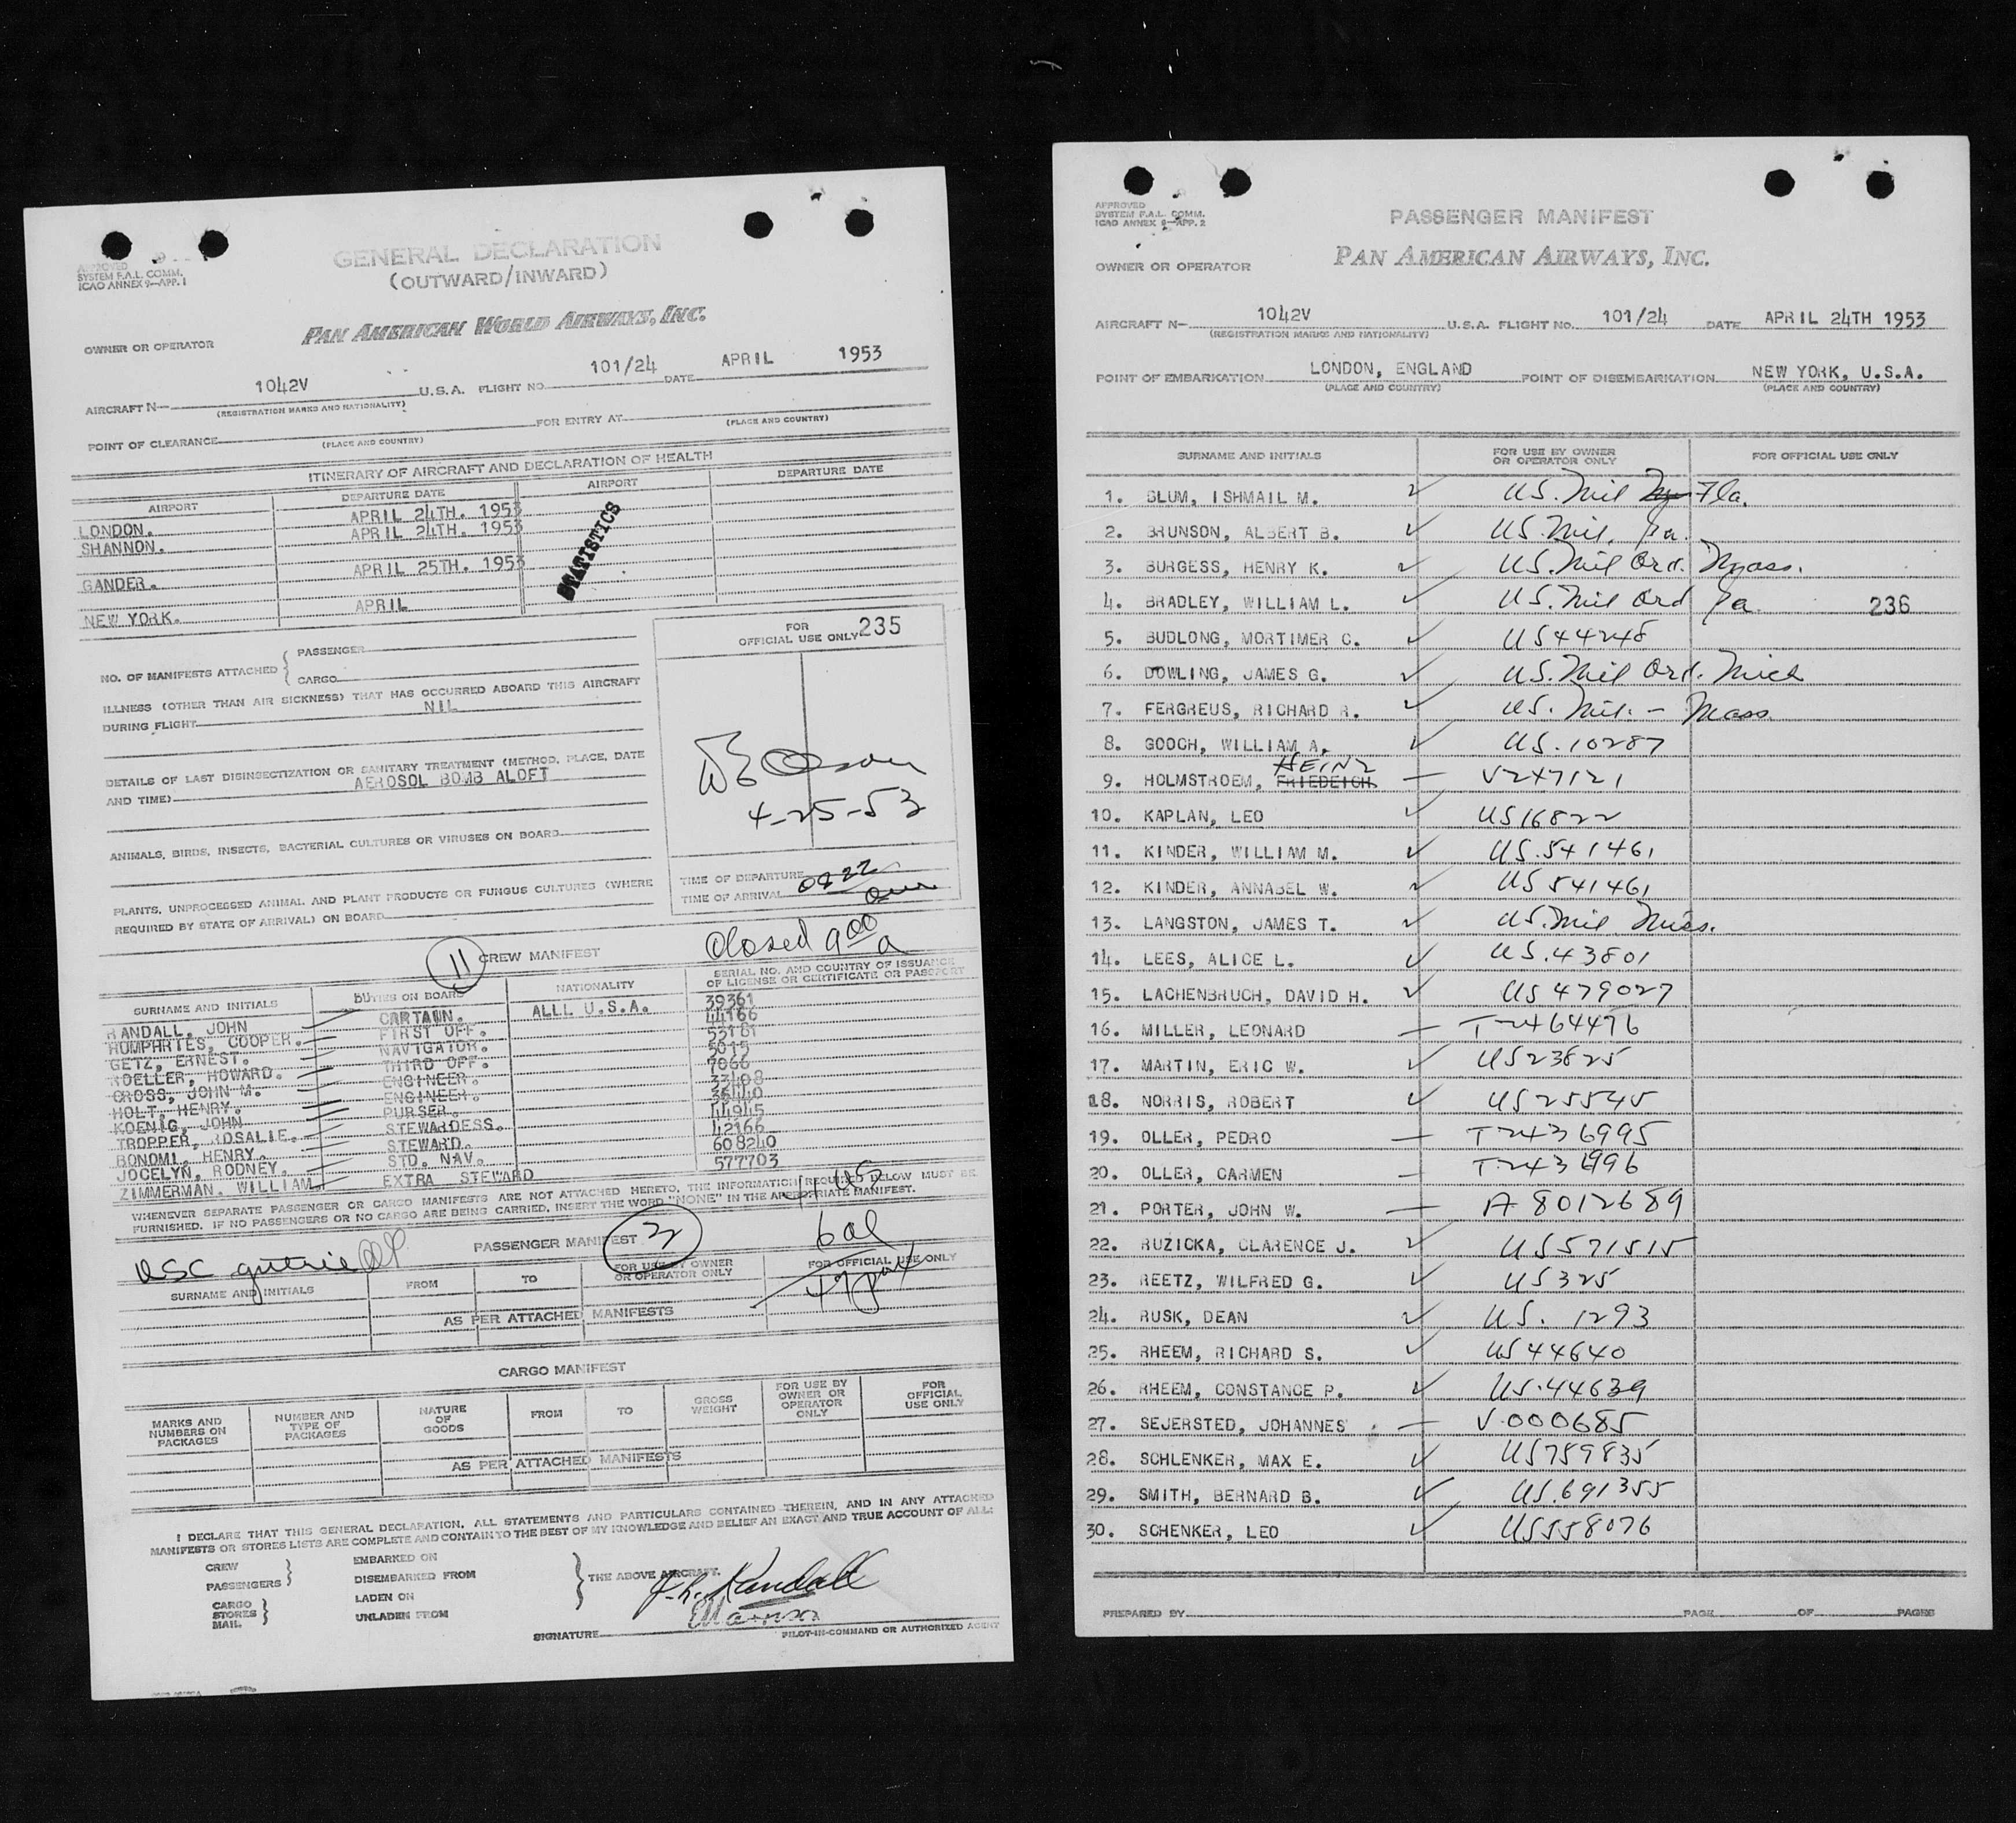 APPROVED
SYSTEM F.A.L. COMM.
ICAO ANNEX 9—APP. 1
GENERAL DECLARATION
(OUTWARD/INWARD)
OWNER OR OPERATOR
PAN AMERICAN WORLD AIRWAYS, INC.
AIRCRAFT N— 1042V U.S.A. FLIGHT NO. 101/24 DATE APRIL 1953
(REGISTRATION MARKS AND NATIONALITY)
POINT OF CLEARANCE FOR ENTRY AT
(PLACE AND COUNTRY) (PLACE AND COUNTRY)
ITINERARY OF AIRCRAFT AND DECLARATION OF HEALTH
AIRPORT DEPARTURE DATE AIRPORT DEPARTURE DATE
LONDON. APRIL 24TH. 1953
SHANNON. APRIL 24TH. 1953
GANDER. APRIL 25TH. 1953
NEW YORK. APRIL
STATISTICS
NO. OF MANIFESTS ATTACHED { PASSENGER
CARGO
FOR
OFFICIAL USE ONLY 235
ILLNESS (OTHER THAN AIR SICKNESS) THAT HAS OCCURRED ABOARD THIS AIRCRAFT
DURING FLIGHT NIL
DETAILS OF LAST DISINSECTIZATION OR SANITARY TREATMENT (METHOD, PLACE, DATE
AND TIME) AEROSOL BOMB ALOFT
4-25-53
ANIMALS, BIRDS, INSECTS, BACTERIAL CULTURES OR VIRUSES ON BOARD
TIME OF DEPARTURE
TIME OF ARRIVAL 0822
PLANTS, UNPROCESSED ANIMAL AND PLANT PRODUCTS OR FUNGUS CULTURES (WHERE
REQUIRED BY STATE OF ARRIVAL) ON BOARD
Closed 9 00 a
11 CREW MANIFEST
SURNAME AND INITIALS DUTIES ON BOARD NATIONALITY SERIAL NO. AND COUNTRY OF ISSUANCE
OF LICENSE OR CERTIFICATE OR PASSPORT
RANDALL, JOHN CAPTAIN. ALLL U.S.A. 39361
HUMPHRIES, COOPER. FIRST OFF. 44166
GETZ, ERNEST. NAVIGATOR. 53181
KOELLER, HOWARD. THIRD OFF. 5015
CROSS, JOHN M. ENGINEER. 7066
HOLT, HENRY. ENGINEER. 33408
KOENIG, JOHN PURSER. 36440
TROPPER, ROSALIE. STEWARDESS. 44945
BONOMI, HENRY. STEWARD. 42166
JOCELYN, RODNEY. STD. NAV. 608240
ZIMMERMAN. WILLIAM EXTRA STEWARD 577703
WHENEVER SEPARATE PASSENGER OR CARGO MANIFESTS ARE NOT ATTACHED HERETO, THE INFORMATION REQUIRED BELOW MUST BE
FURNISHED. IF NO PASSENGERS OR NO CARGO ARE BEING CARRIED, INSERT THE WORD "NONE" IN THE APPROPRIATE MANIFEST.
PASSENGER MANIFEST 2
SURNAME AND INITIALS FROM TO FOR USE BY OWNER
OR OPERATOR ONLY FOR OFFICIAL USE ONLY
AS PER ATTACHED MANIFESTS
CARGO MANIFEST
MARKS AND
NUMBERS ON
PACKAGES NUMBER AND
TYPE OF
PACKAGES NATURE
OF
GOODS FROM TO GROSS
WEIGHT FOR USE BY
OWNER OR
OPERATOR
ONLY FOR
OFFICIAL
USE ONLY
AS PER ATTACHED MANIFESTS
I DECLARE THAT THIS GENERAL DECLARATION, ALL STATEMENTS AND PARTICULARS CONTAINED THEREIN, AND IN ANY ATTACHED
MANIFESTS OR STORES LISTS ARE COMPLETE AND CONTAIN TO THE BEST OF MY KNOWLEDGE AND BELIEF AN EXACT AND TRUE ACCOUNT OF ALL:
CREW
PASSENGERS
CARGO
STORES
MAIL
EMBARKED ON
DISEMBARKED FROM
LADEN ON
UNLADEN FROM
THE ABOVE AIRCRAFT.
J.h. Randall
SIGNATURE
PILOT-IN-COMMAND OR AUTHORIZED AGENT
APPROVED
SYSTEM F.A.L. COMM.
ICAO ANNEX 9—APP. 2
PASSENGER MANIFEST
OWNER OR OPERATOR PAN AMERICAN AIRWAYS, INC.
AIRCRAFT N— 1042V U.S.A. FLIGHT NO. 101/24 DATE APRIL 24TH 1953
(REGISTRATION MARKS AND NATIONALITY)
POINT OF EMBARKATION LONDON, ENGLAND POINT OF DISEMBARKATION NEW YORK, U.S.A.
(PLACE AND COUNTRY) (PLACE AND COUNTRY)
SURNAME AND INITIALS FOR USE BY OWNER
OR OPERATOR ONLY FOR OFFICIAL USE ONLY
1. BLUM, ISHMAIL M. ✓ US. Mil Fla.
2. BRUNSON, ALBERT B. ✓ US. Mil. Pa.
3. BURGESS, HENRY K. ✓ US. Mil Ord. Mass.
4. BRADLEY, WILLIAM L. ✓ US. Mil Ord Pa. 236
5. BUDLONG, MORTIMER C. ✓ US44248
6. DOWLING, JAMES G. ✓ US. Mil Ord. Mich
7. FERGREUS, RICHARD R. ✓ US. Mil. — Mass.
8. GOOCH, WILLIAM A. ✓ US. 10287
9. HOLMSTROEM, FRIEDEICH HEINZ — V247121
10. KAPLAN, LEO ✓ US16822
11. KINDER, WILLIAM M. ✓ US. 541461
12. KINDER, ANNABEL W. ✓ US 541461
13. LANGSTON, JAMES T. ✓ US. Mil Miss.
14. LEES, ALICE L. ✓ US. 43801
15. LACHENBRUCH, DAVID H. ✓ US 479027
16. MILLER, LEONARD — T2464476
17. MARTIN, ERIC W. ✓ US23825
18. NORRIS, ROBERT ✓ US25545
19. OLLER, PEDRO — T2436995
20. OLLER, CARMEN — T2436996
21. PORTER, JOHN W. — A 8012689
22. RUZICKA, CLARENCE J. ✓ US571515
23. REETZ, WILFRED G. ✓ US325
24. RUSK, DEAN ✓ US. 1293
25. RHEEM, RICHARD S. ✓ US44640
26. RHEEM, CONSTANCE P. ✓ US. 44639
27. SEJERSTED, JOHANNES — V.000685
28. SCHLENKER, MAX E. ✓ US759835
29. SMITH, BERNARD B. ✓ US. 691355
30. SCHENKER, LEO ✓ US558076
PREPARED BY PAGE OF PAGES